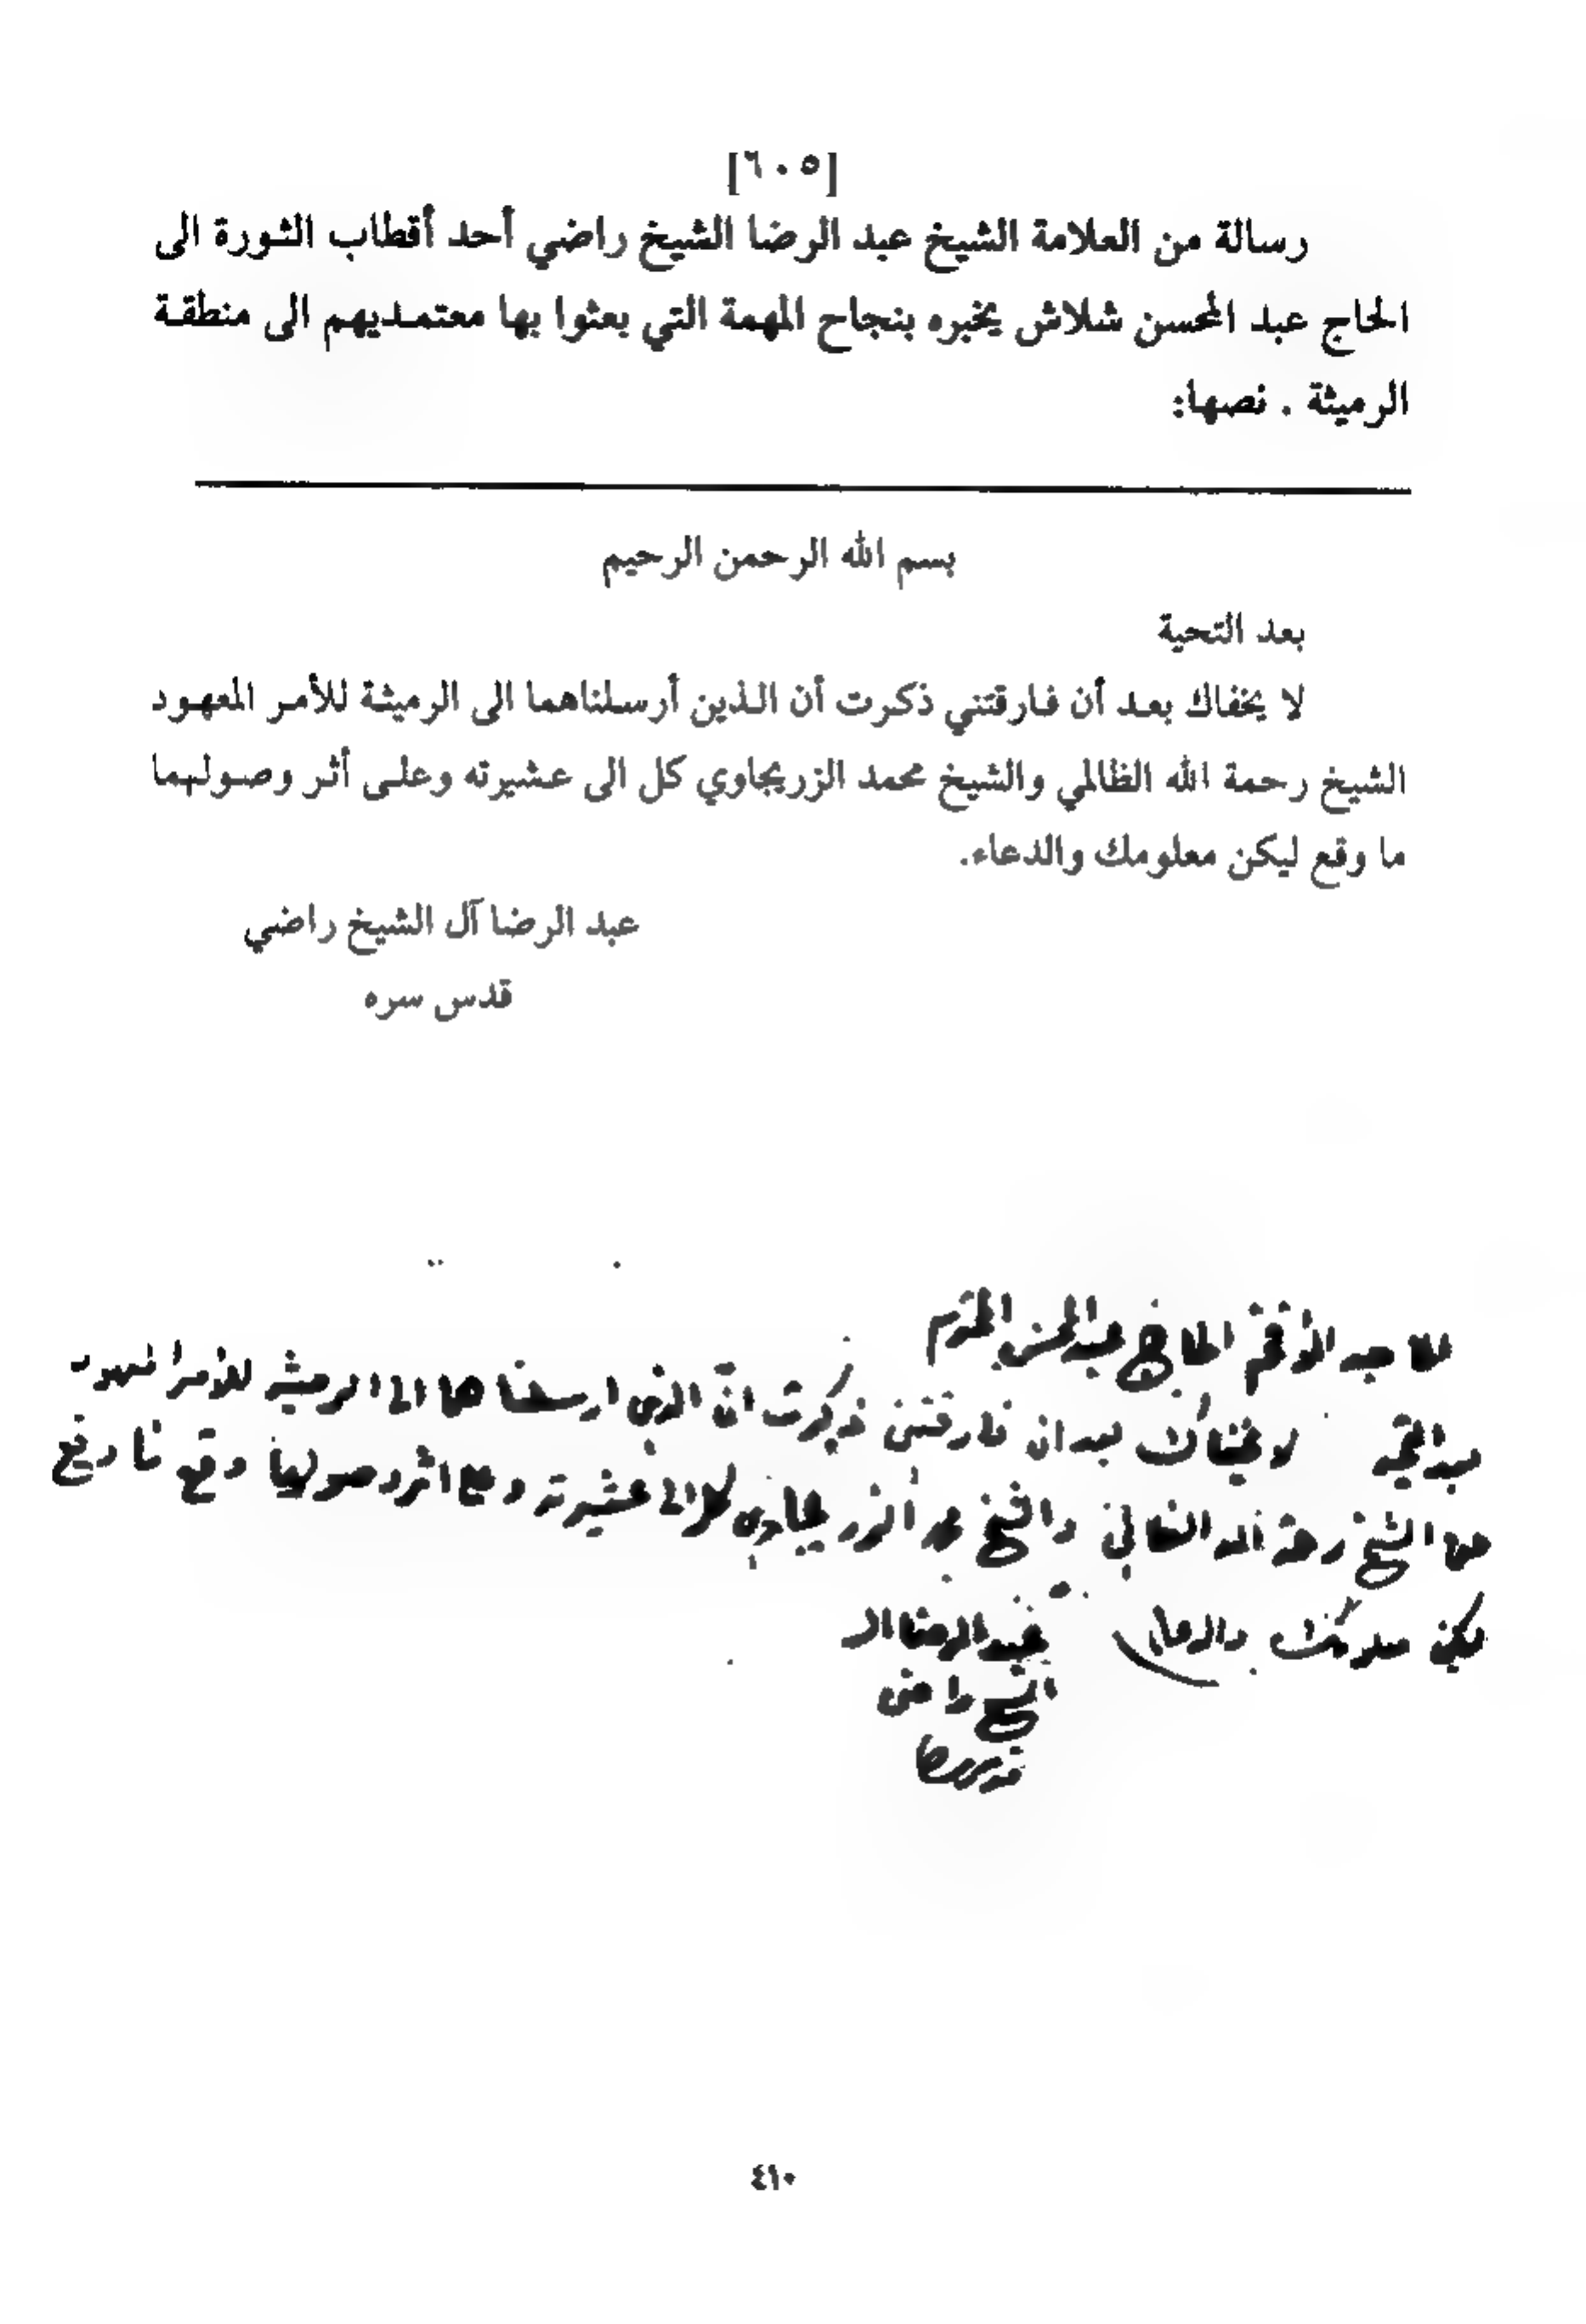 [٦٠٥]
رسالة من العلامة الشيخ عبد الرضا الشيخ راضي أحد أقطاب الثورة الى
الحاج عبد المحسن شلاش يخبره بنجاح المهمة التي بعثوا بها معتمديهم الى منطقة
الرميثة . نصها:
بسم الله الرحمن الرحيم
بعد التحية
لا يخفاك بعد أن فارقتني ذكرت أن الذين أرسلناهما الى الرميثة للأمر المعهود
الشيخ رحمة الله الظالمي والشيخ محمد الزريجاوي كل الى عشيرته وعلى أثر وصولهما
ما وقع ليكن معلومك والدعاء.
عبد الرضا آل الشيخ راضي
قدس سره
الحاج عبد المحسن المحترم
بعد التحية لا يخفاك بعد ان فارقتني ذكرت ان الذين ارسلناهما الى الرميثة للأمر المعهود
هما الشيخ رحمة الله الظالمي والشيخ محمد الزريجاوي كلا الى عشيرته وعلى اثر وصولهما وقع ما وقع
ليكن معلومك والدعاء
عبد الرضا ال
الشيخ راضي
٤١٠